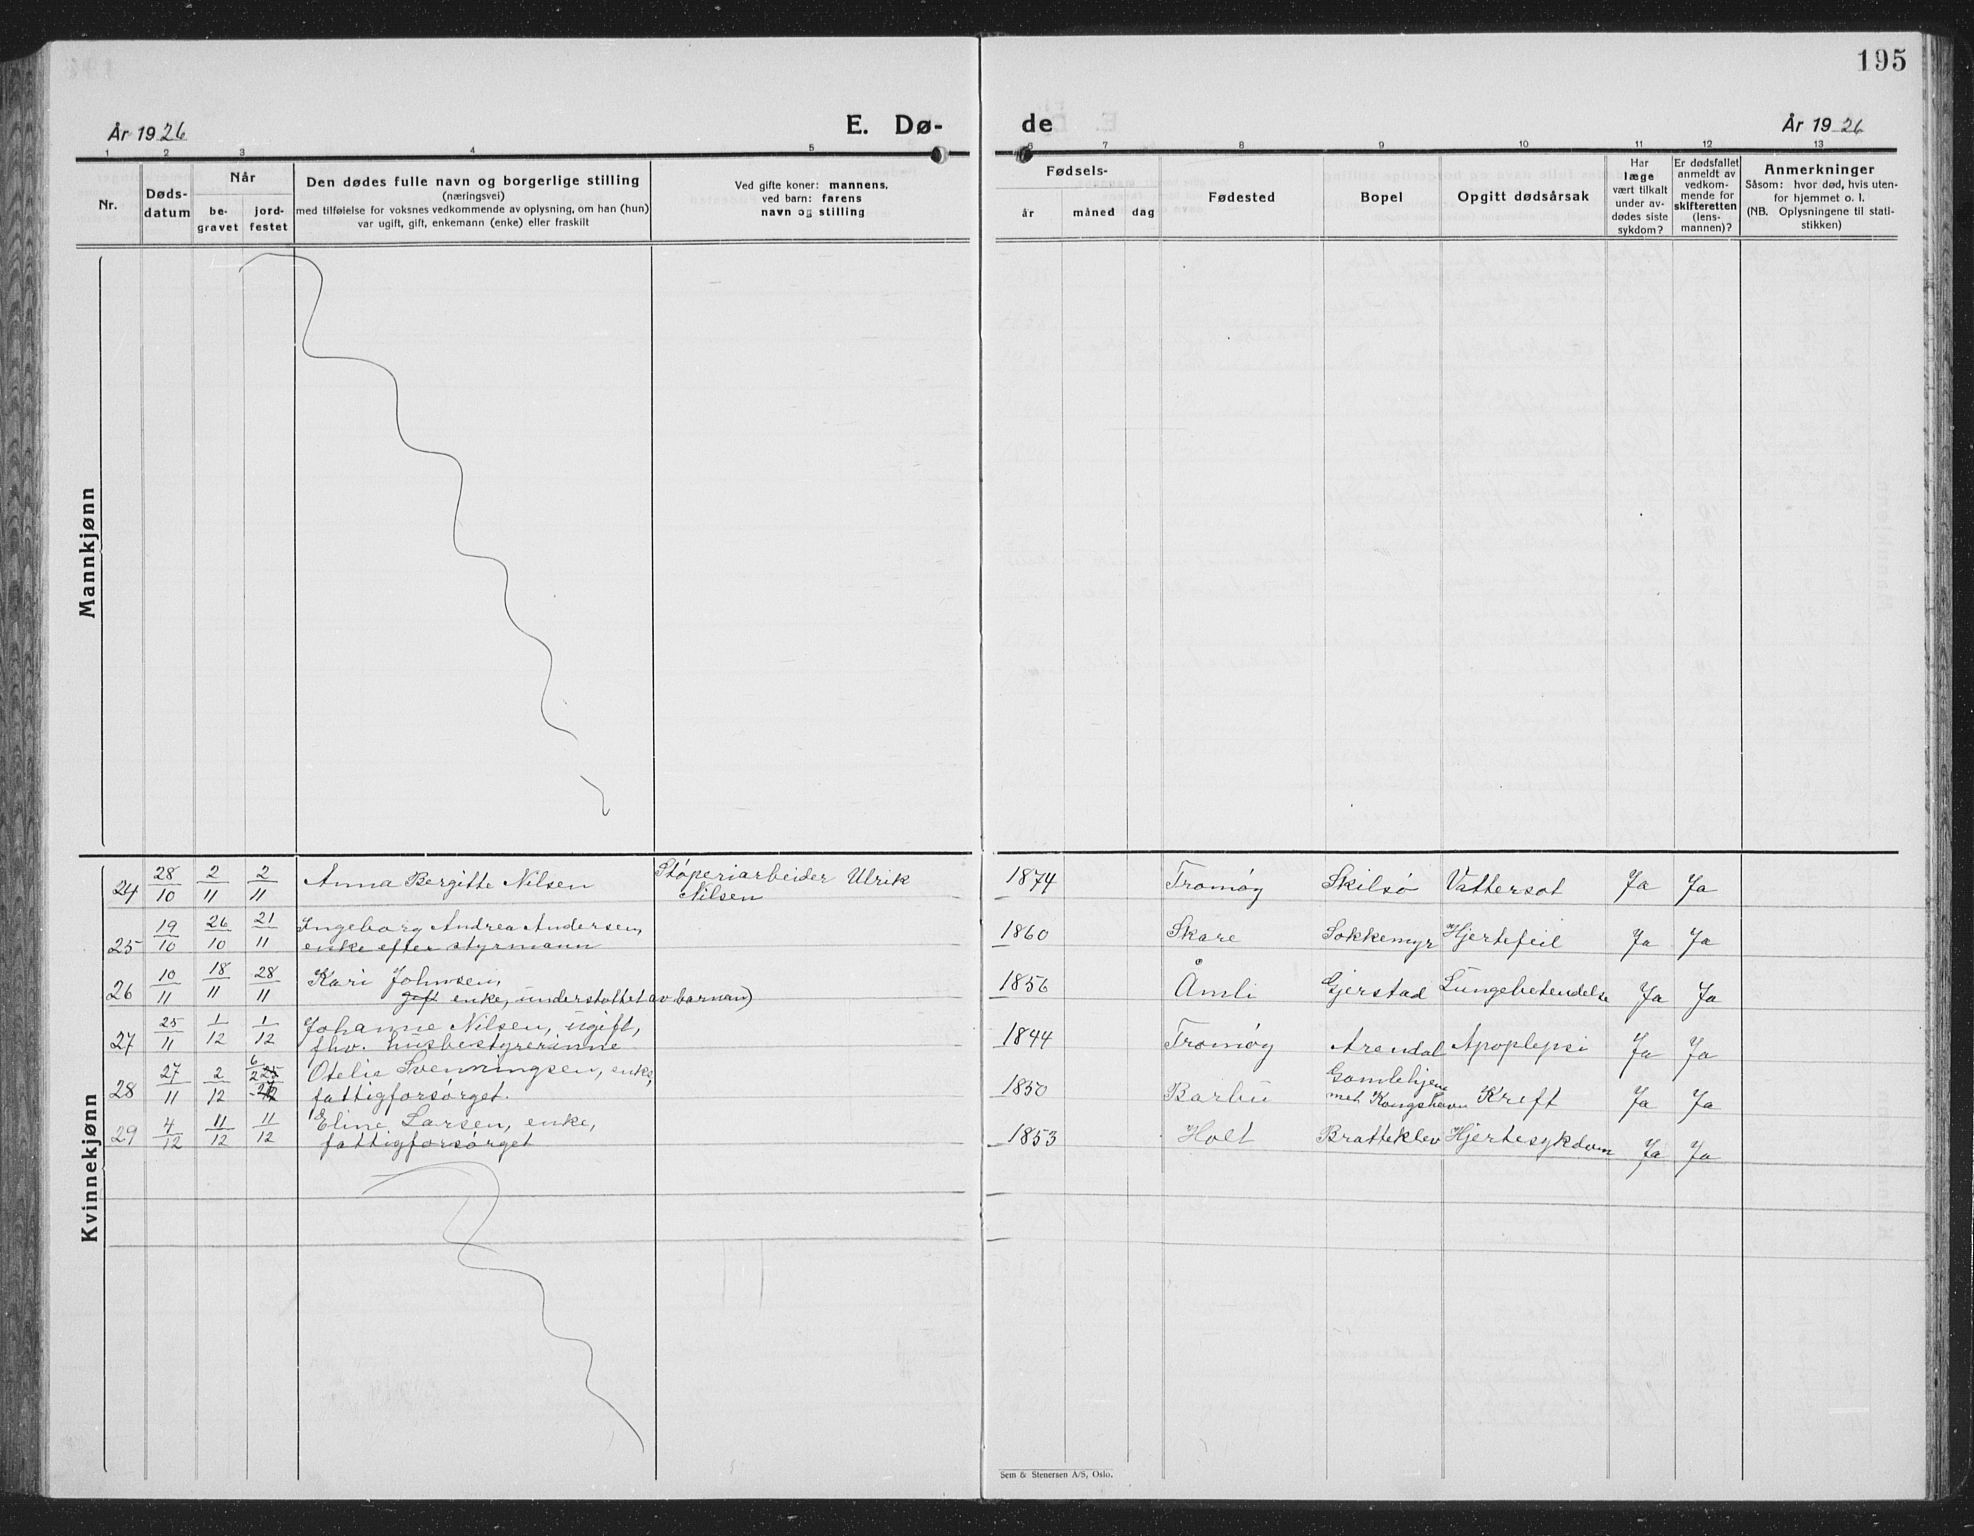 195
År 1926 E. Dø- de År 1926
1 2 3 4 5 6 7 8 9 10 11 12 13
Nr.
Døds-
datum
Når
be-
gravet
jord-
festet
Den dødes fulle navn og borgerlige stilling
(næringsvei)
med tilføielse for voksnes vedkommende av oplysning, om han (hun)
var ugift, gift, enkemann (enke) eller fraskilt
Ved gifte koner: mannens,
ved barn: farens
navn og stilling
Fødsels-
år måned dag
Fødested
Bopel
Opgitt dødsårsak
Har
læge
vært tilkalt
under av-
dødes siste
sykdom?
Er dødsfallet
anmeldt av
vedkom-
mende for
skifteretten
(lens-
mannen)?
Anmerkninger
Såsom: hvor død, hvis uten-
for hjemmet o. l.
(NB. Oplysningene til stati-
stikken)
Mannkjønn
Kvinnekjønn
24 28/10 2/11 2/11 Anna Bergitte Nilsen Støperiarbeider Ulrik
Nilsen 1874 Tromøy Skilsø Vattersot Ja Ja
25 19/10 26/10 21/11 Ingeborg Andrea Andersen,
enke efter styrmann 1860 Skare Sokkemyr Hjertefeil Ja Ja
26 10/11 18/11 28/11 Kari Johnsen,
gift enke, understøttet av barnan) 1856 Åmli Gjerstad Lungebetendelse Ja Ja
27 25/11 1/12 1/12 Johanne Nilsen, ugift,
fhv. husbestyrerinne 1844 Tromøy Arendal Apoplepsi Ja Ja
28 27/11 2/12 Otelie Svenningsen, enke,
fattigforsørget. 1850 Barbu Gamlehjem
met Kongshavn Kreft Ja Ja
29 4/12 11/12 11/12 Eline Larsen, enke,
fattigforsørget 1853 Holt Bratteklev Hjertesykdom Ja Ja
Sem & Stenersen A/S, Oslo.